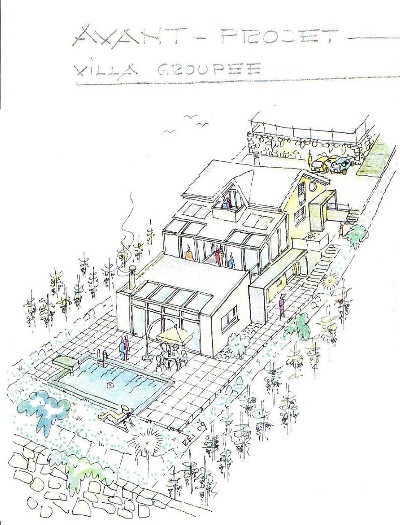 AVANT - PROJET
VILLA GROUPEE